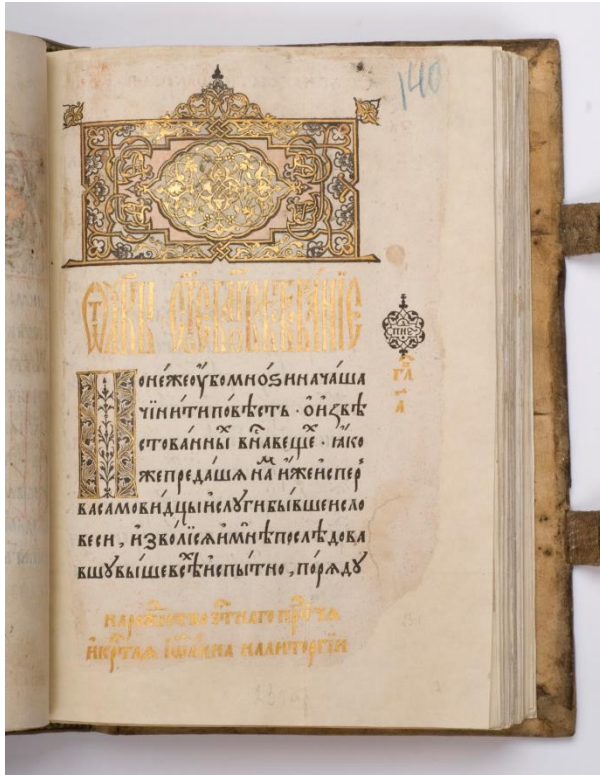 140
Ѿ ЛꙊКИ СТ҃ОЕ БЛГ҃ОВѢСТВОВАНЇЕ
Поне́жеоу҆бомно́ѕиначаша
чи́нитипо́вѣсть · о҆и҆звѣ
стова́нныⷯ внаⷭ веще · ꙗ҆ко
жепреда́шѧнаⷨ и҆́жеиспеⷬ
васамови́дцыи҆слꙋги́бы́вшеисло
веси , и҆зво́лїсѧи҆мнѣпослѣдова
вшꙋвы́шевсѣⷯи҆спы́тно , порѧдꙋ
гл҃
а҃
нарожⷣество чⷭтнаго прⷣтчѧ
и҆крⷭтлѧ іѡа́нна налиторгїи